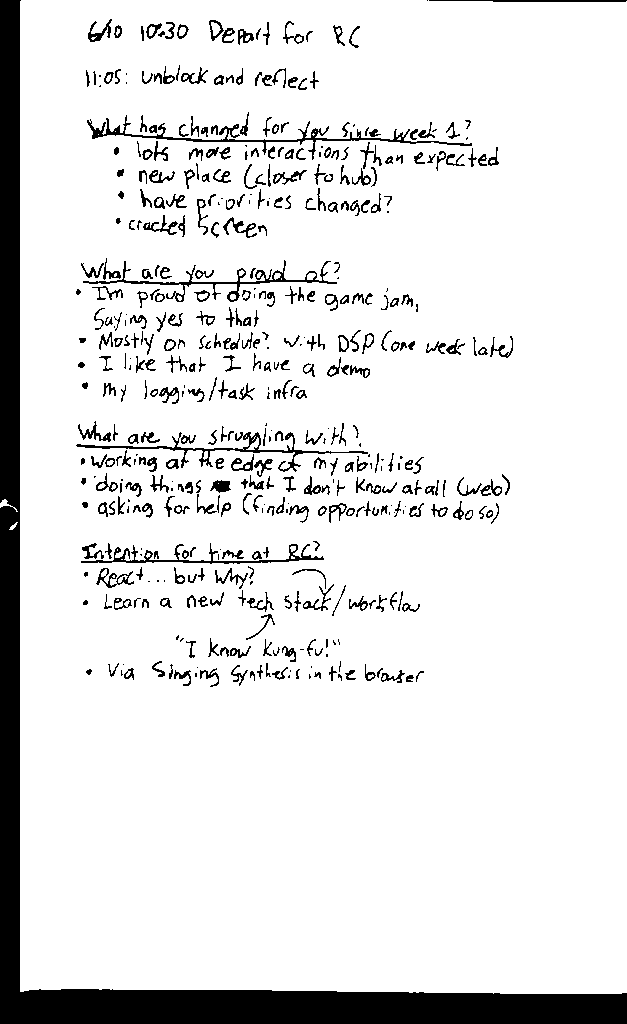 6/10 10:30 Depart for RC
11:05: unblock and reflect
What has changed for you since week 1?
• lots more interactions than expected
• new place (closer to hub)
• have priorities changed?
• cracked screen
What are you proud of?
• I'm proud of doing the game jam,
Saying yes to that
• Mostly on schedule? with DSP (one week late)
• I like that I have a demo
• my logging/task infra
What are you struggling with?
• working at the edge of my abilities
• doing things that I don't know at all (web)
• asking for help (finding opportunities to do so)
Intention for time at RC?
• React... but why?
• Learn a new tech stack/workflow
"I know kung-fu!"
• Via Singing Synthesis in the browser